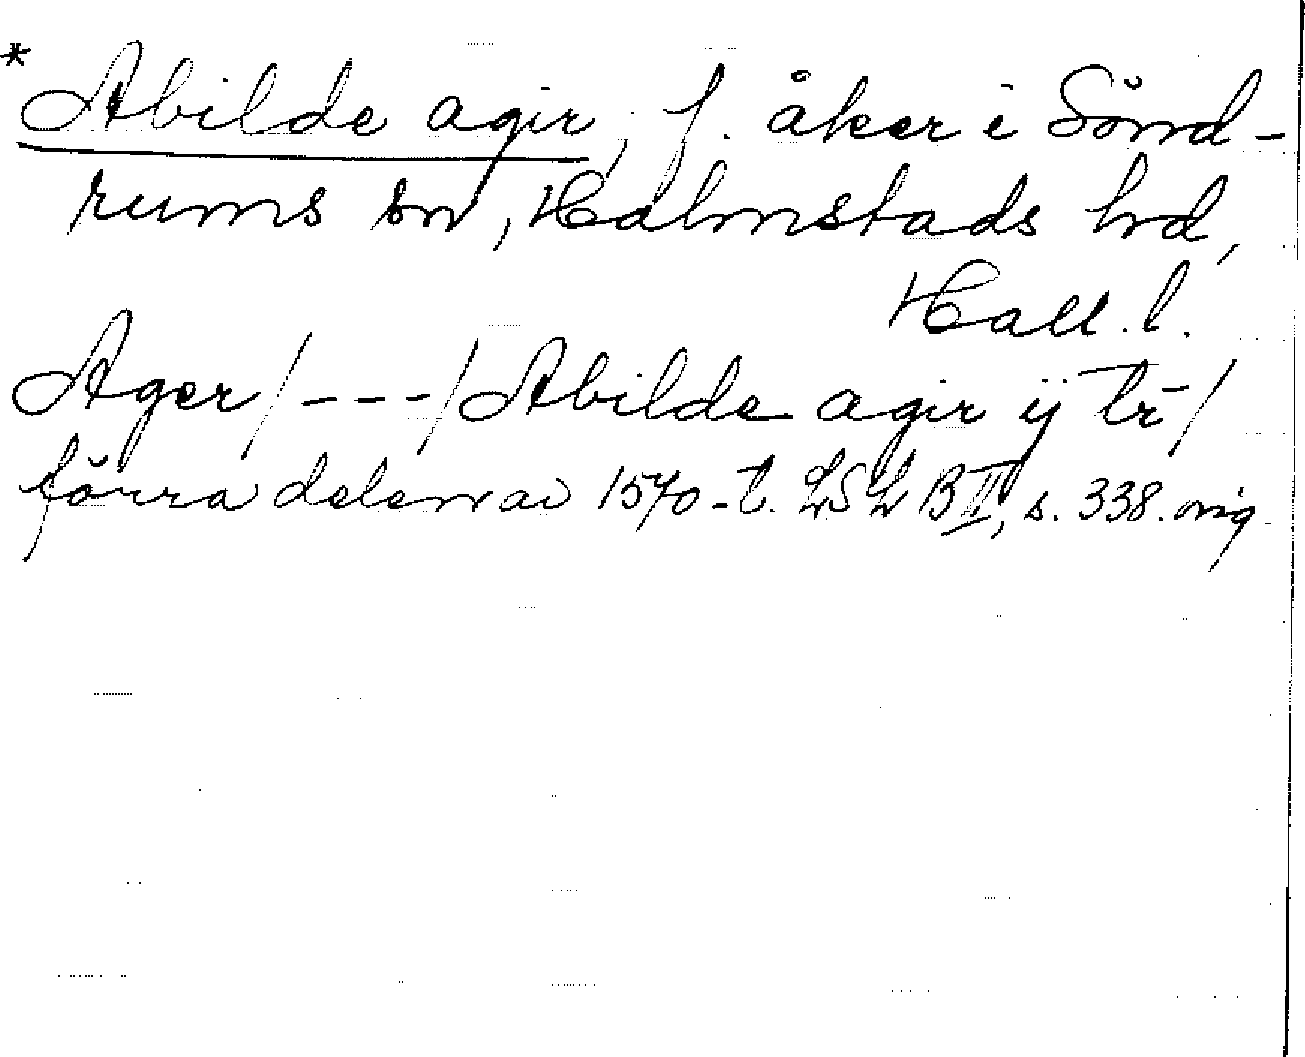 * Abilde agir, f. åker i Sönd-
rums sn, Halmstads hd,
Hall. l.
Ager /---/ Abilde agir ij tr̄ /
förra delen av 1570-t. LSLB II, s. 338. orig.